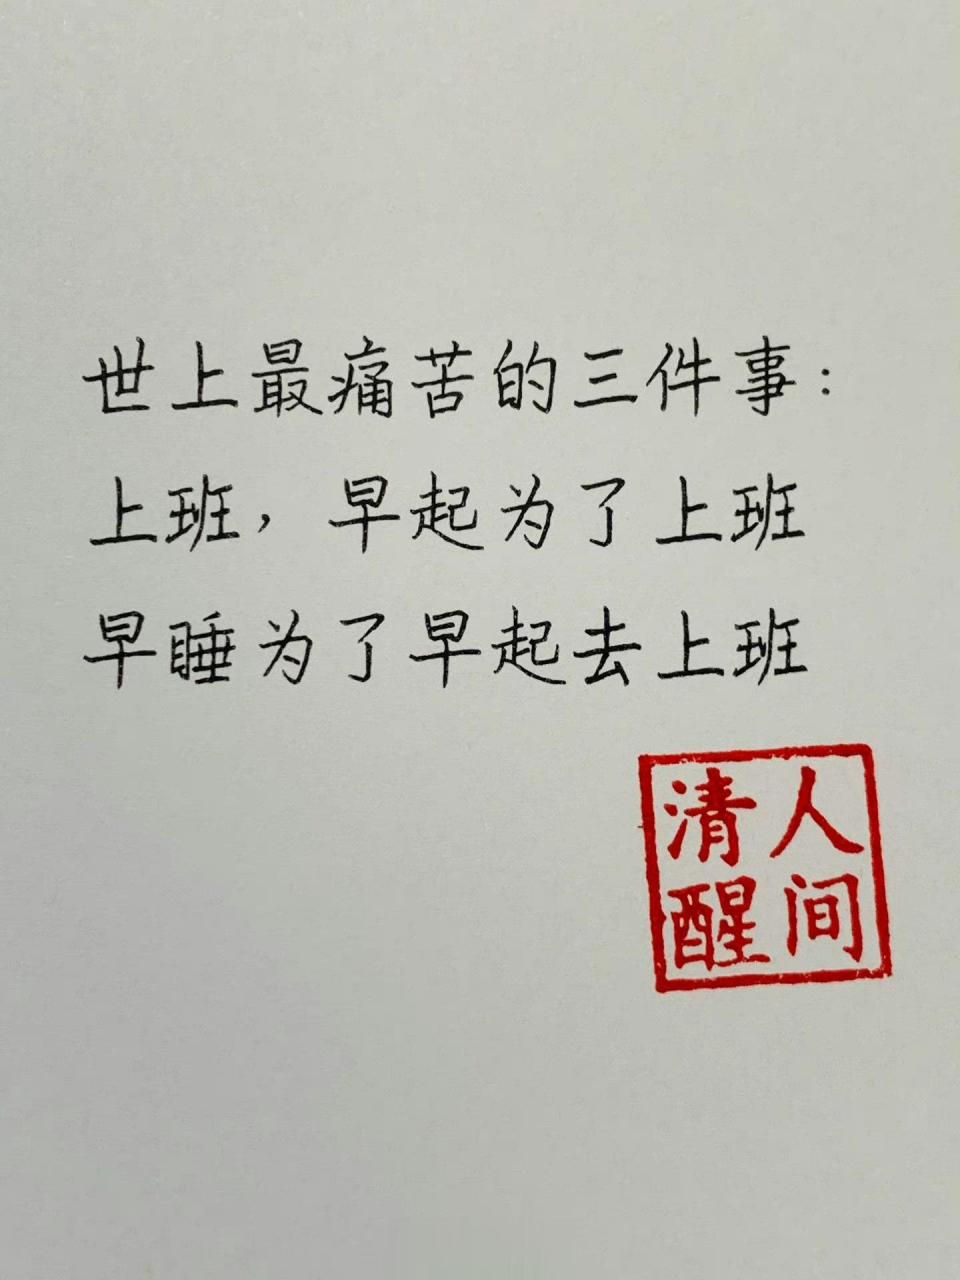 世上最痛苦的三件事：
上班，早起为了上班
早睡为了早起去上班
人间
清醒